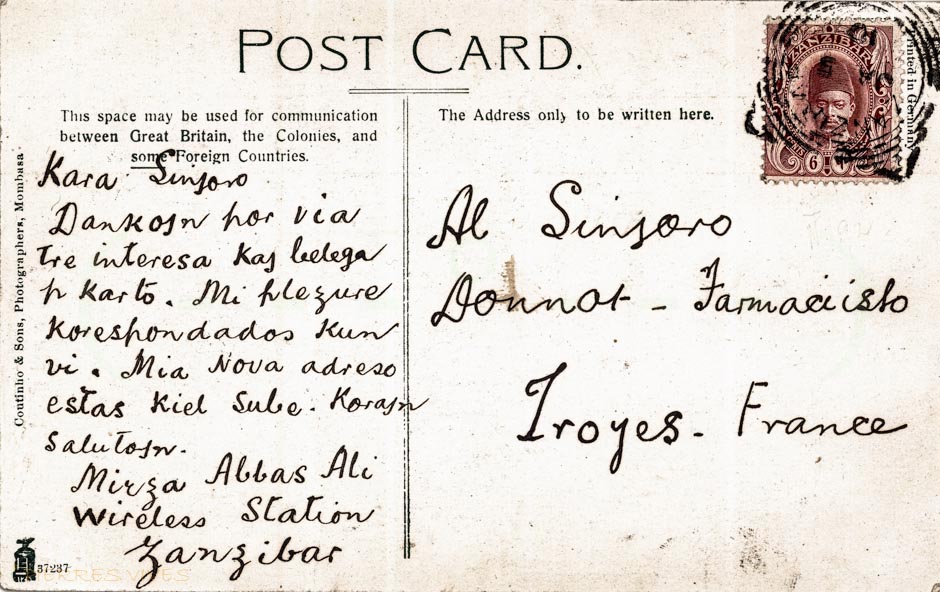 POST CARD.
This space may be used for communication
between Great Britain, the Colonies, and
some Foreign Countries.
Kara Sinjoro
Dankojn por via
tre interesa kaj belega
p karto. Mi plezure
korespondados kun
vi. Mia Nova adreso
estas kiel sube. Korajn
salutojn.
Mirza Abbas Ali
Wireless Station
Zanzibar
The Address only to be written here.
Al Sinjoro
Donnot - Farmaciisto
Troyes - France
ZANZIBAR
6
Printed in Germany
Coutinho & Sons, Photographers, Mombasa
37237